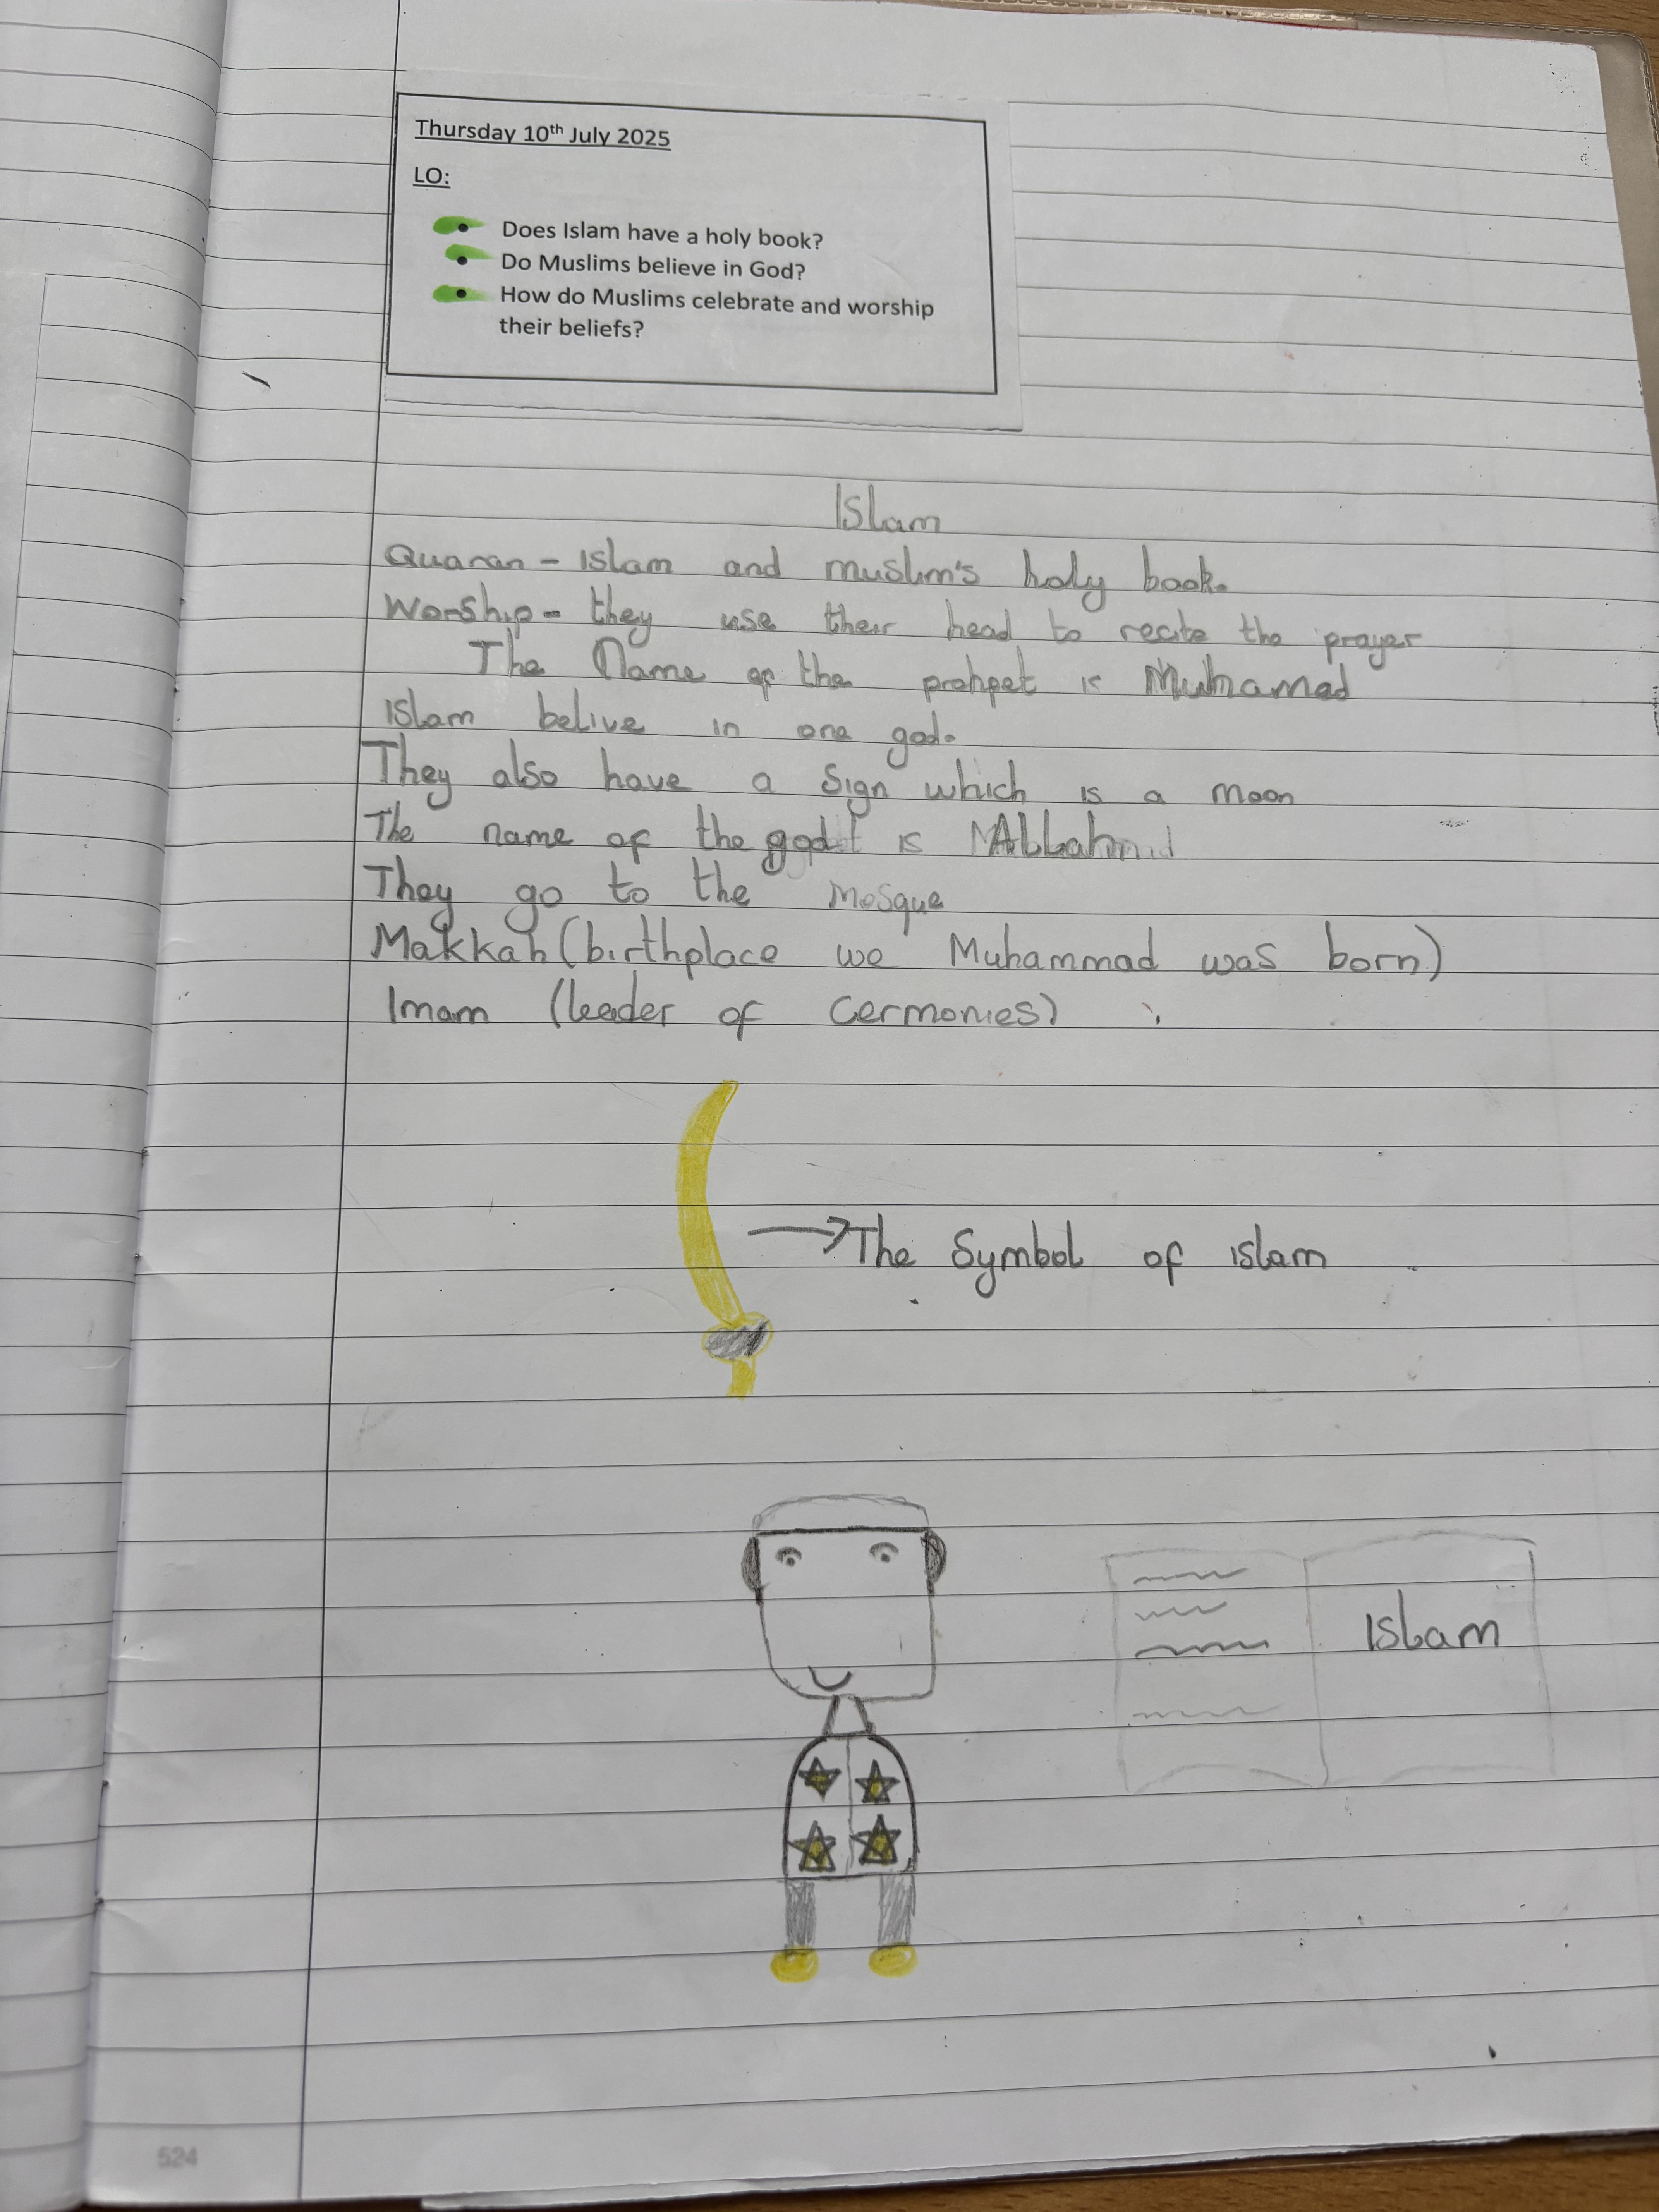 Thursday 10th July 2025
LO:
Does Islam have a holy book?
Do Muslims believe in God?
How do Muslims celebrate and worship
their beliefs?
Islam
Quaran - Islam and muslim's holy book.
Worship - they use their head to recite the prayer
The Name of the prohpet is Muhamad
Islam belive in one god.
They also have a Sign which is a moon
The name of the god is Allah
They go to the Mosque
Makkah (birthplace we Muhammad was born)
Imam (leader of cermonies)
The Symbol of islam
Islam
524